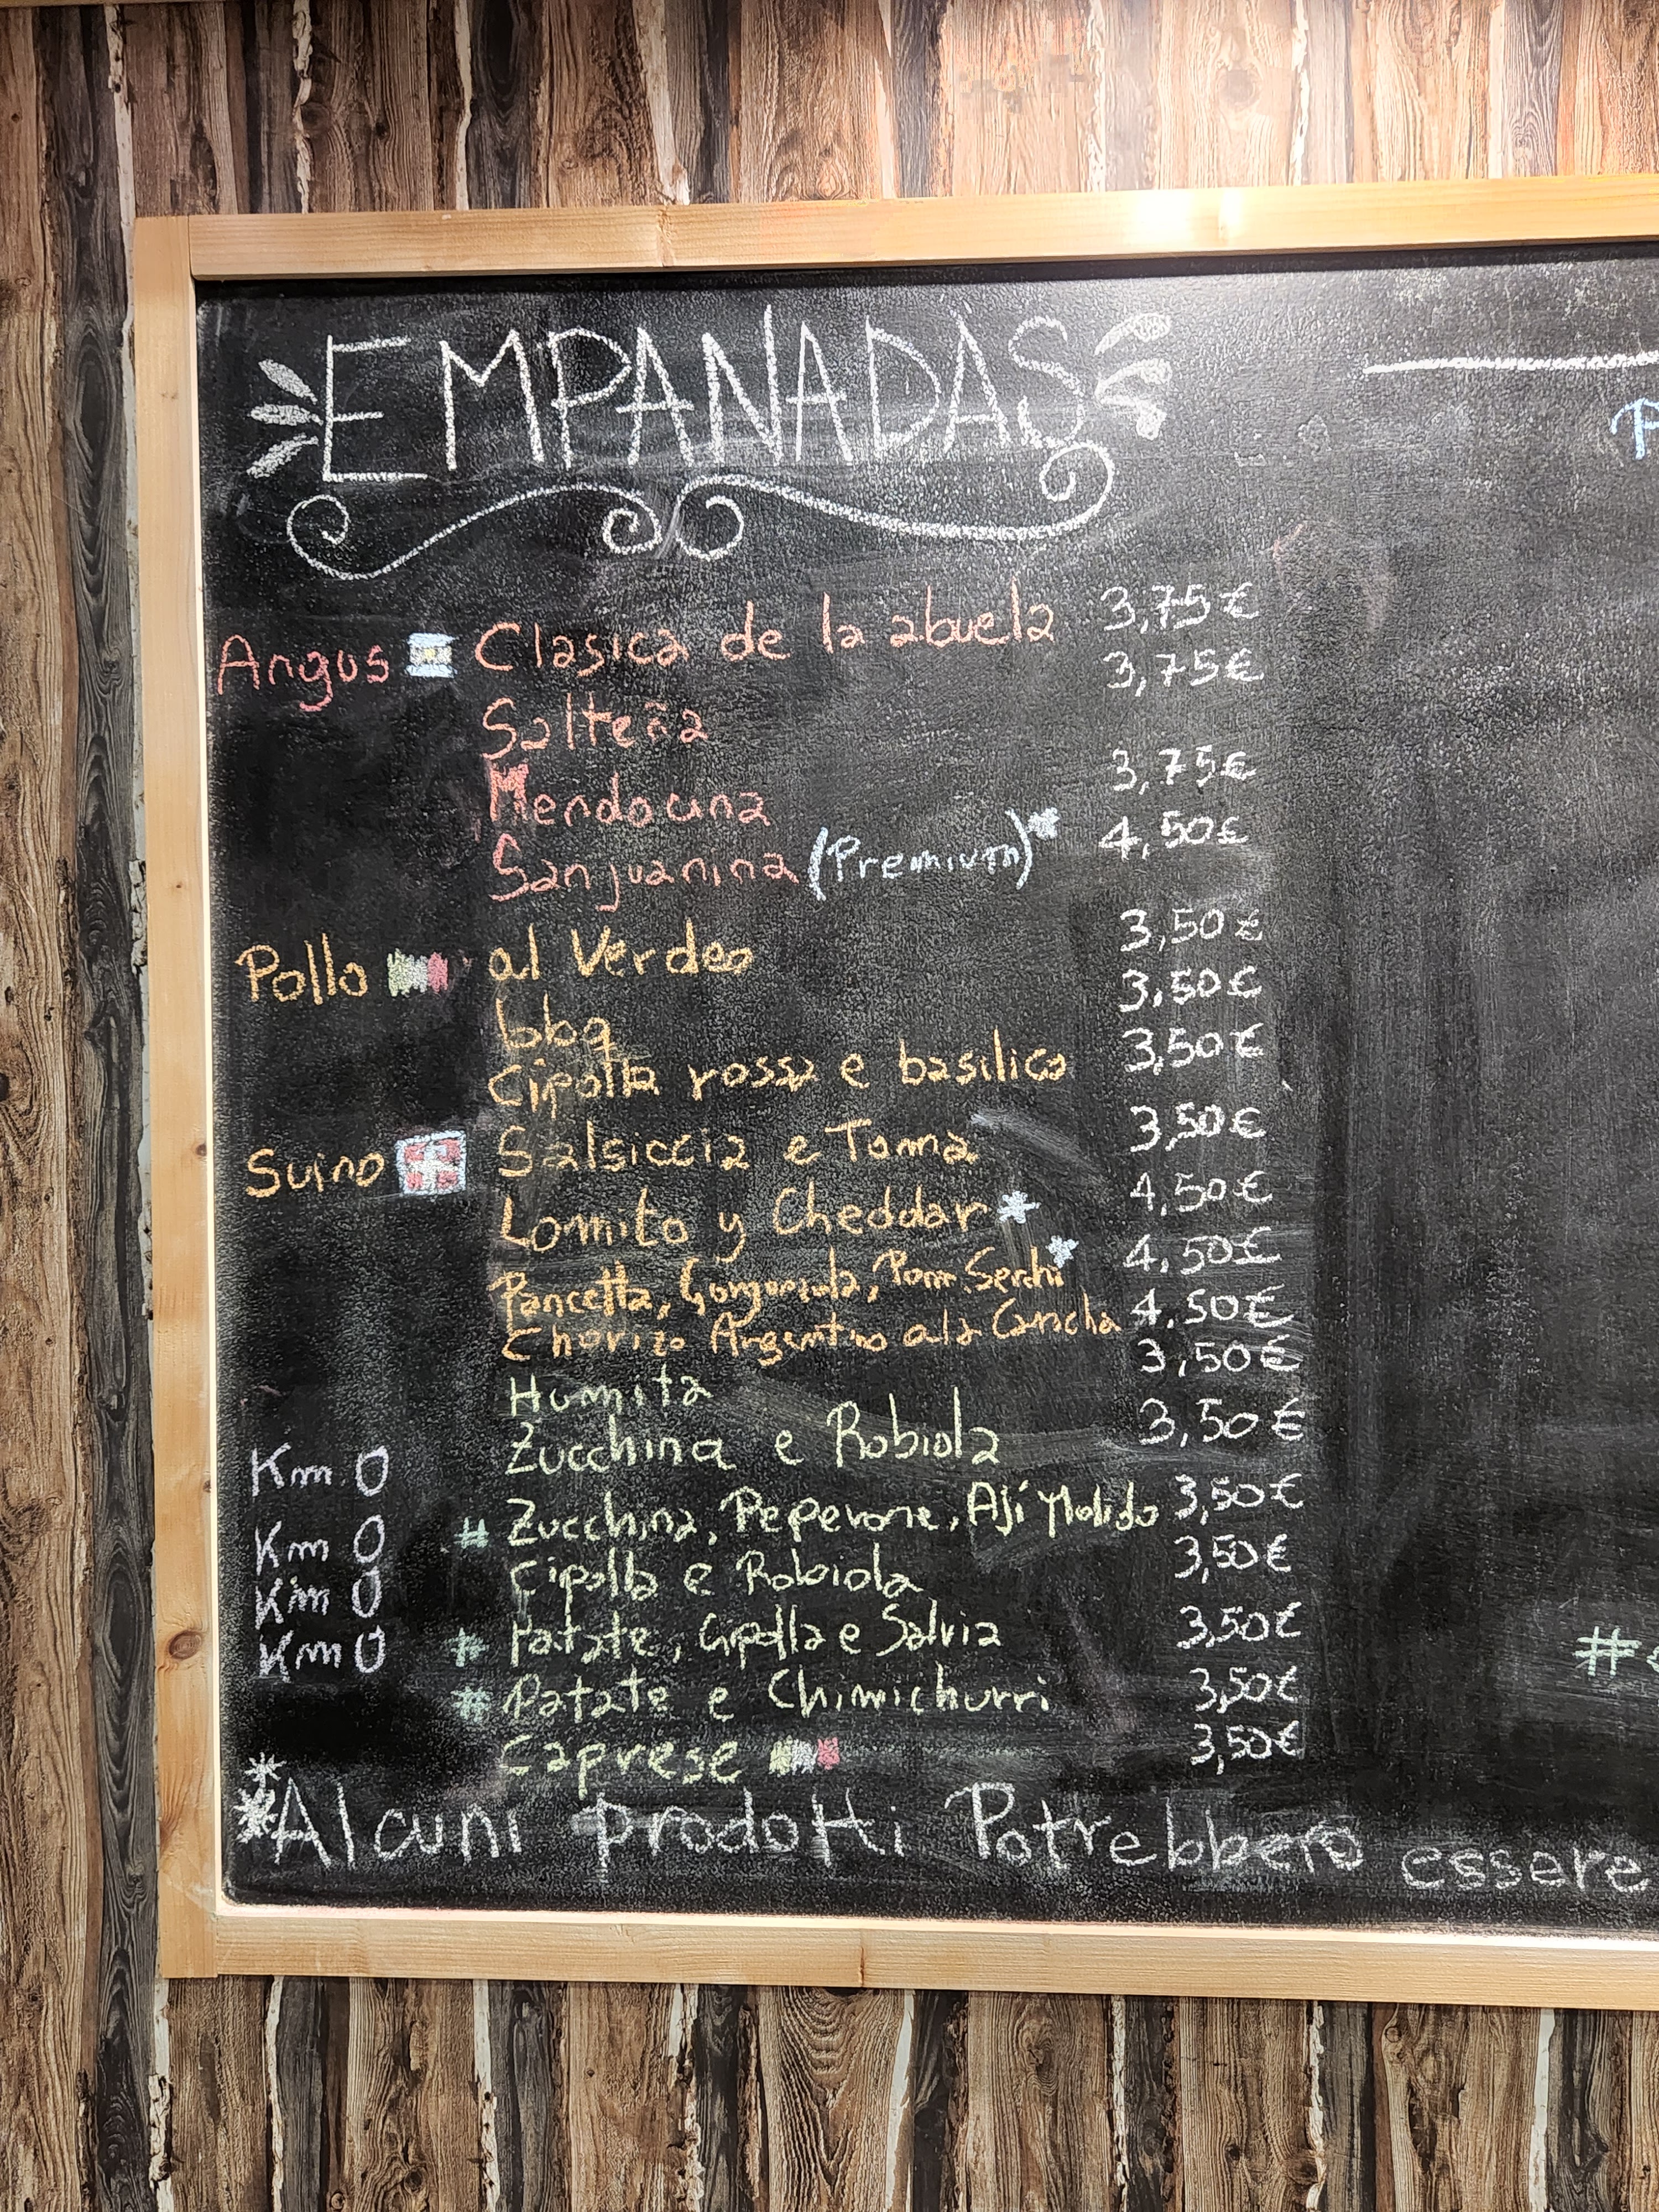 EMPANADAS
Angus Clasica de la abuela 3,75€
Salteña 3,75€
Mendocina 3,75€
Sanjuanina (Premium)* 4,50€
Pollo al Verdeo 3,50€
bbq 3,50€
Cipolla rossa e basilico 3,50€
Suino Salsiccia e Toma 3,50€
Lomito y Cheddar * 4,50€
Pancetta, Gorgonzola, Pom. Secchi * 4,50€
Chorizo Argentino a la Cancha 4,50€
Humita 3,50€
Km 0 Zucchina e Robiola 3,50€
# Zucchina, Peperone, Ají Molido 3,50€
Km 0 Cipolla e Robiola 3,50€
Km 0 # Patate, Cipolla e Salvia 3,50€
Km 0 # Patate e Chimichurri 3,50€
Caprese 3,50€
*Alcuni prodotti Potrebbero essere
P
#